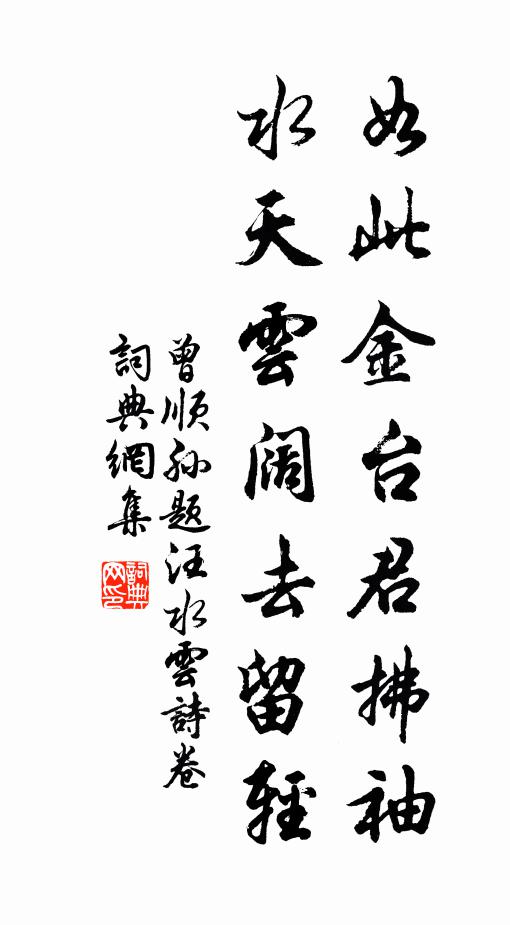 如此金台君拂袖
水天雲阔去留輕
曾顺孙题汪水雲詩卷
詞典網集
詞典
网印